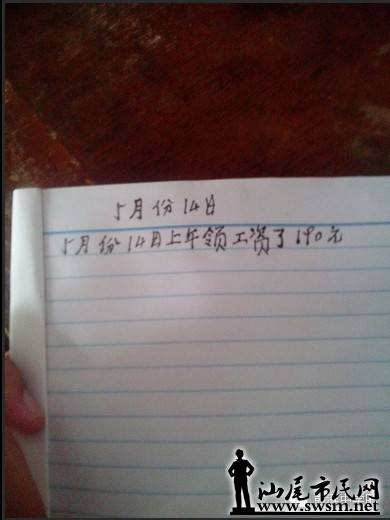 5月份14日
5月份14日上午领工资了190元
汕尾市民网
www.swsm.net